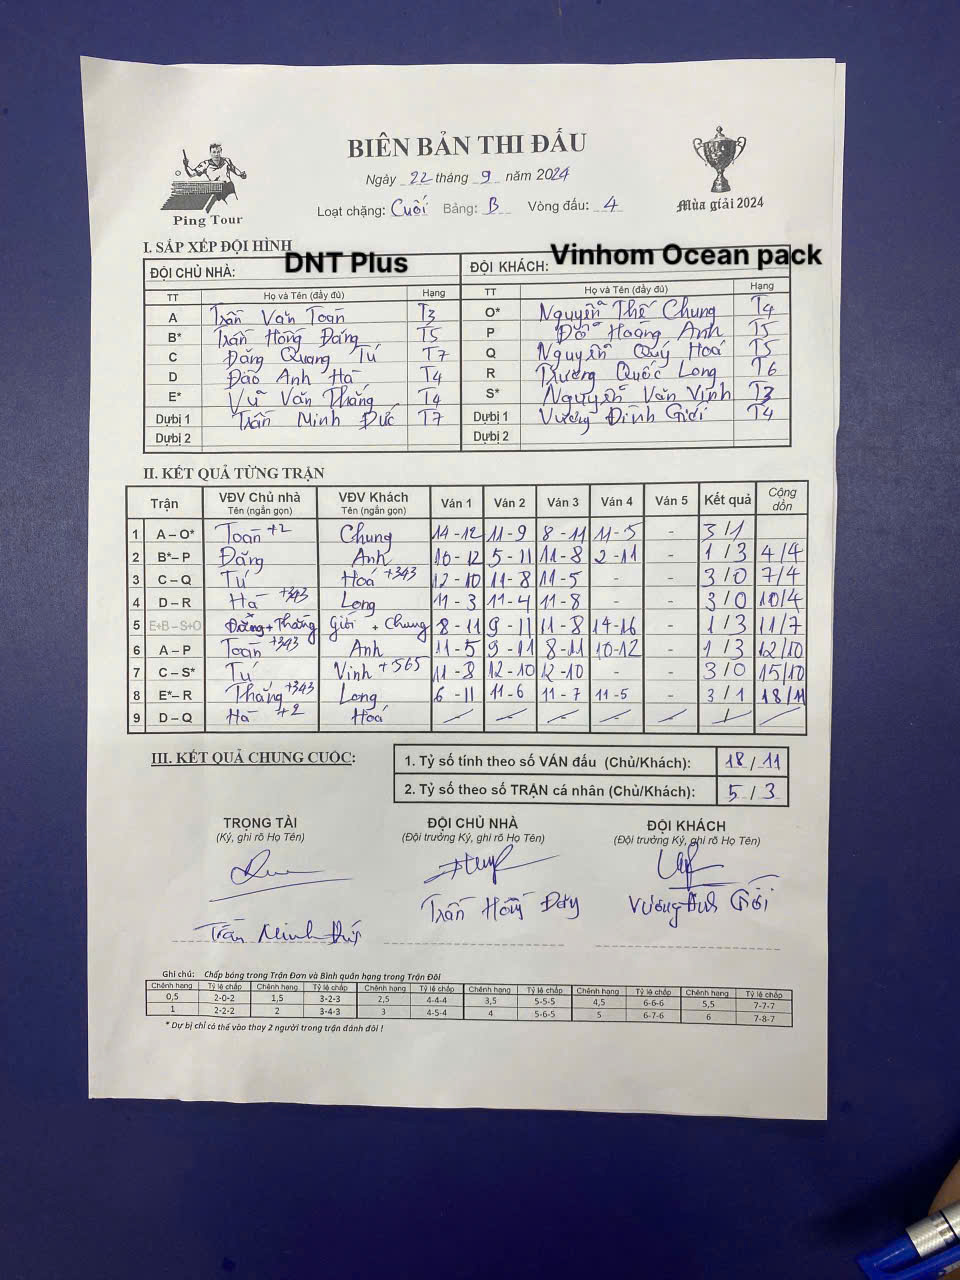 BIÊN BẢN THI ĐẤU
Ngày 22 tháng 9 năm 2024
Loạt chặng: Cuối Bảng: B Vòng đấu: 4
Ping Tour
Mùa giải 2024
I. SẮP XẾP ĐỘI HÌNH
ĐỘI CHỦ NHÀ: DNT Plus ĐỘI KHÁCH: Vinhom Ocean pack
TT Họ và Tên (đầy đủ) Hạng TT Họ và Tên (đầy đủ) Hạng
A Trần Văn Toàn T3 O* Nguyễn Thế Chung T4
B* Trần Hồng Đăng T5 P Đỗ Hoàng Anh T5
C Đặng Quang Tú T7 Q Nguyễn Quý Hoá T5
D Đào Anh Hà T4 R Trương Quốc Long T6
E* Vũ Văn Thắng T4 S* Nguyễn Văn Vinh T3
Dự bị 1 Trần Minh Đức T7 Dự bị 1 Vương Đình Giới T4
Dự bị 2 Dự bị 2
II. KẾT QUẢ TỪNG TRẬN
Trận VĐV Chủ nhà Tên (ngắn gọn) VĐV Khách Tên (ngắn gọn) Ván 1 Ván 2 Ván 3 Ván 4 Ván 5 Kết quả Cộng dồn
1 A – O* Toàn +2 Chung 14 - 12 11 - 9 8 - 11 11 - 5 - 3 / 1
2 B* – P Đăng Anh 10 - 12 5 - 11 11 - 8 2 - 11 - 1 / 3 4/4
3 C – Q Tú Hoá +343 12 - 10 11 - 8 11 - 5 - - 3 / 0 7/4
4 D – R Hà +343 Long 11 - 3 11 - 4 11 - 8 - - 3 / 0 10/4
5 E+B – S+O Đăng + Thắng Giới + Chung 8 - 11 9 - 11 11 - 8 14 - 16 - 1 / 3 11/7
6 A – P Toàn +343 Anh 11 - 5 9 - 11 8 - 11 10 - 12 - 1 / 3 12/10
7 C – S* Tú Vinh +565 11 - 8 12 - 10 12 - 10 - - 3 / 0 15/10
8 E* – R Thắng +343 Long 6 - 11 11 - 6 11 - 7 11 - 5 - 3 / 1 18/11
9 D – Q Hà +2 Hoá - - - - - /
III. KẾT QUẢ CHUNG CUỘC:
1. Tỷ số tính theo số VÁN đấu (Chủ/Khách): 18 / 11
2. Tỷ số theo số TRẬN cá nhân (Chủ/Khách): 5 / 3
TRỌNG TÀI ĐỘI CHỦ NHÀ ĐỘI KHÁCH
(Ký, ghi rõ Họ Tên) (Đội trưởng Ký, ghi rõ Họ Tên) (Đội trưởng Ký, ghi rõ Họ Tên)
Trần Minh Trần Hồng Vương Đình Giới
Ghi chú: Chấp bóng trong Trận Đơn và Bình quân hạng trong Trận Đôi
Chênh hạng Tỷ lệ chấp Chênh hạng Tỷ lệ chấp Chênh hạng Tỷ lệ chấp Chênh hạng Tỷ lệ chấp Chênh hạng Tỷ lệ chấp Chênh hạng Tỷ lệ chấp
0,5 2-0-2 1,5 3-2-3 2,5 4-4-4 3,5 5-5-5 4,5 6-6-6 5,5 7-7-7
1 2-2-2 2 3-4-3 3 4-5-4 4 5-6-5 5 6-7-6 6 7-8-7
* Dự bị chỉ có thể vào thay 2 người trong trận đánh đôi !